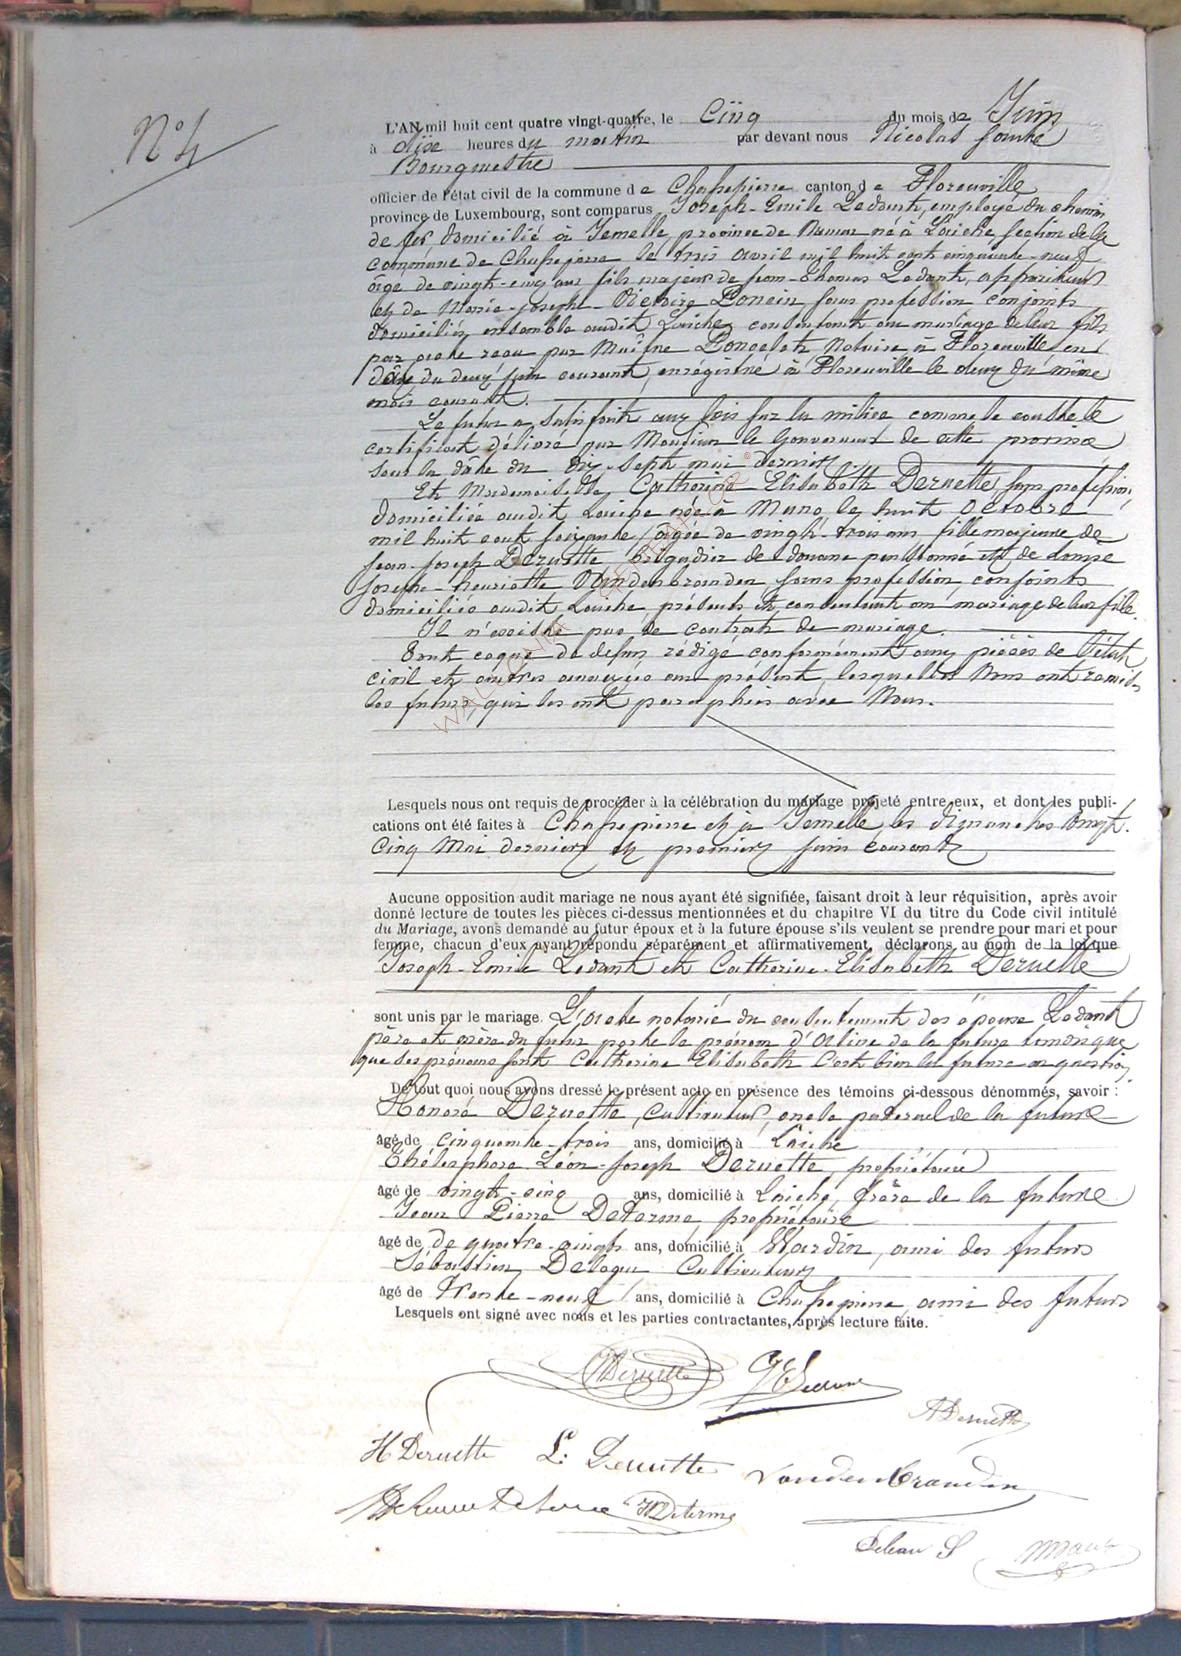 N° 4
L'AN mil huit cent quatre vingt-quatre, le Cinq du mois de Juin
à dix heures du matin par devant nous Nicolas
Bourgmestre
officier de l'état civil de la commune de Chassepierre canton de Florenville
province de Luxembourg, sont comparus Joseph-Emile Ledant, employé du chemin
de fer domicilié à Jemelle, province de Namur né à Laiche, section de la
commune de Chassepierre le trois avril mil huit cent cinquante-neuf
âgé de vingt-cinq ans fils majeur de Jean-Thomas Ledant, appariteur
et de Marie-Joseph-Victoire Poncin sans profession conjoints
domiciliés ensemble audit Laiche, consentant au mariage de leur fils
par acte reçu par Maître Poncelet Notaire à Florenville, en
date du deux Juin courant, enrégistré à Florenville le deux du même
mois courant.
Le futur a satisfait aux lois sur la milice comme le constate le
certificat délivré par Monsieur le Gouverneur de cette province
sous la date du dix-sept mai dernier,
Et Mademoiselle Catherine Elisabeth Deruette sans profession,
domiciliée audit Laiche née à Muno le huit Octobre
mil huit cent soixante, âgée de vingt-trois ans fille majeure de
Jean-Joseph Deruette brigadier de douane pensionné et de
Joseph-henriette Vandenbranden sans profession, conjoints
domiciliés audit Laiche, présents et consentant au mariage de leur fille.
Il n'existe pas de contrat de mariage.
Tout ce que de dessus rédigé conformément aux pièces de l'état
civil et autres annexées au présent, lesquelles Nous ont remises
les futurs, qui les ont paraphées avec Nous.
Lesquels nous ont requis de procéder à la célébration du mariage projeté entre eux, et dont les publi-
cations ont été faites à Chassepierre et à Jemelle, les dimanches vingt-
cinq Mai dernier et premier Juin courant
Aucune opposition audit mariage ne nous ayant été signifiée, faisant droit à leur réquisition, après avoir
donné lecture de toutes les pièces ci-dessus mentionnées et du chapitre VI du titre du Code civil intitulé
du Mariage, avons demandé au futur époux et à la future épouse s'ils veulent se prendre pour mari et pour
femme, chacun d'eux ayant répondu séparément et affirmativement, déclarons au nom de la loi que
Joseph-Emile Ledant et Catherine-Elisabeth Deruette
sont unis par le mariage. L'acte notarié du consentement des époux Ledant
père et mère du futur porte le prénom d'Aline de la future
que ses prénoms sont Catherine Elisabeth C'est bien la future en question
De tout quoi nous avons dressé le présent acte en présence des témoins ci-dessous dénommés, savoir :
Honoré Deruette, Cultivateur, oncle paternel de la future
âgé de cinquante-trois ans, domicilié à Laiche
Thélesphore Léon-Joseph Deruette, propriétaire
âgé de vingt-cinq ans, domicilié à Laiche, frère de la future
Jean Pierre Determe, propriétaire
âgé de de quatre-vingts ans, domicilié à Hardin, ami des futurs
Sébastien Cultivateur
âgé de Trente-neuf ans, domicilié à Chassepierre ami des futurs
Lesquels ont signé avec nous et les parties contractantes, après lecture faite.
Deruette JE Ledant
A Deruette
H Deruette L. Deruette Vandenbranden
Determe
S